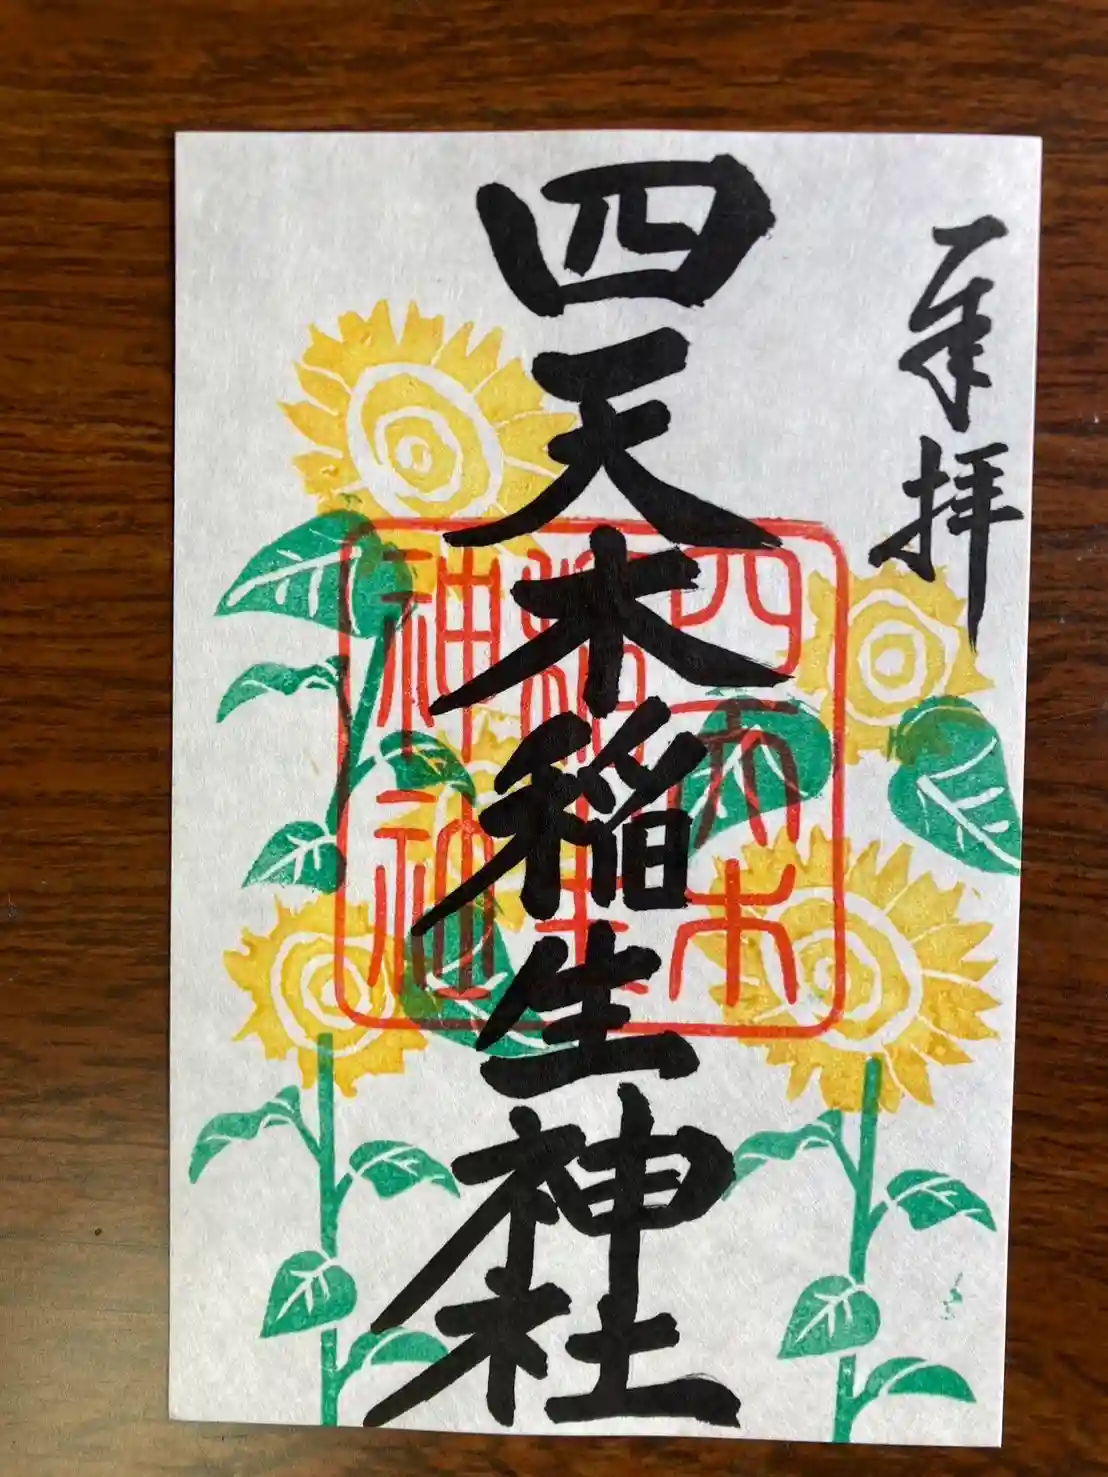 奉拝
四天木稲生神社
四天木
神社